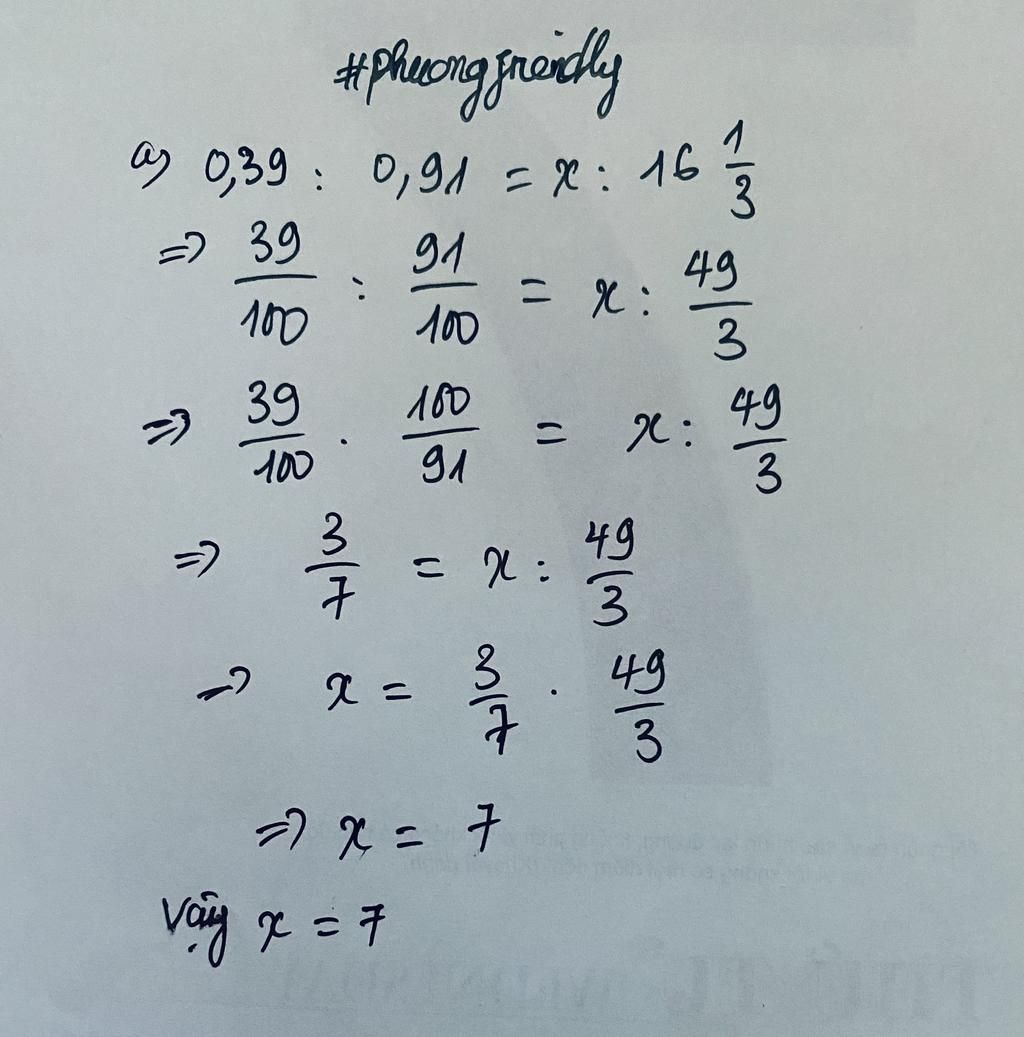 #phuongfriendly
a) 0,39 : 0,91 = x : 16 1/3
=> 39/100 : 91/100 = x : 49/3
=> 39/100 . 100/91 = x : 49/3
=> 3/7 = x : 49/3
=> x = 3/7 . 49/3
=> x = 7
Vậy x = 7